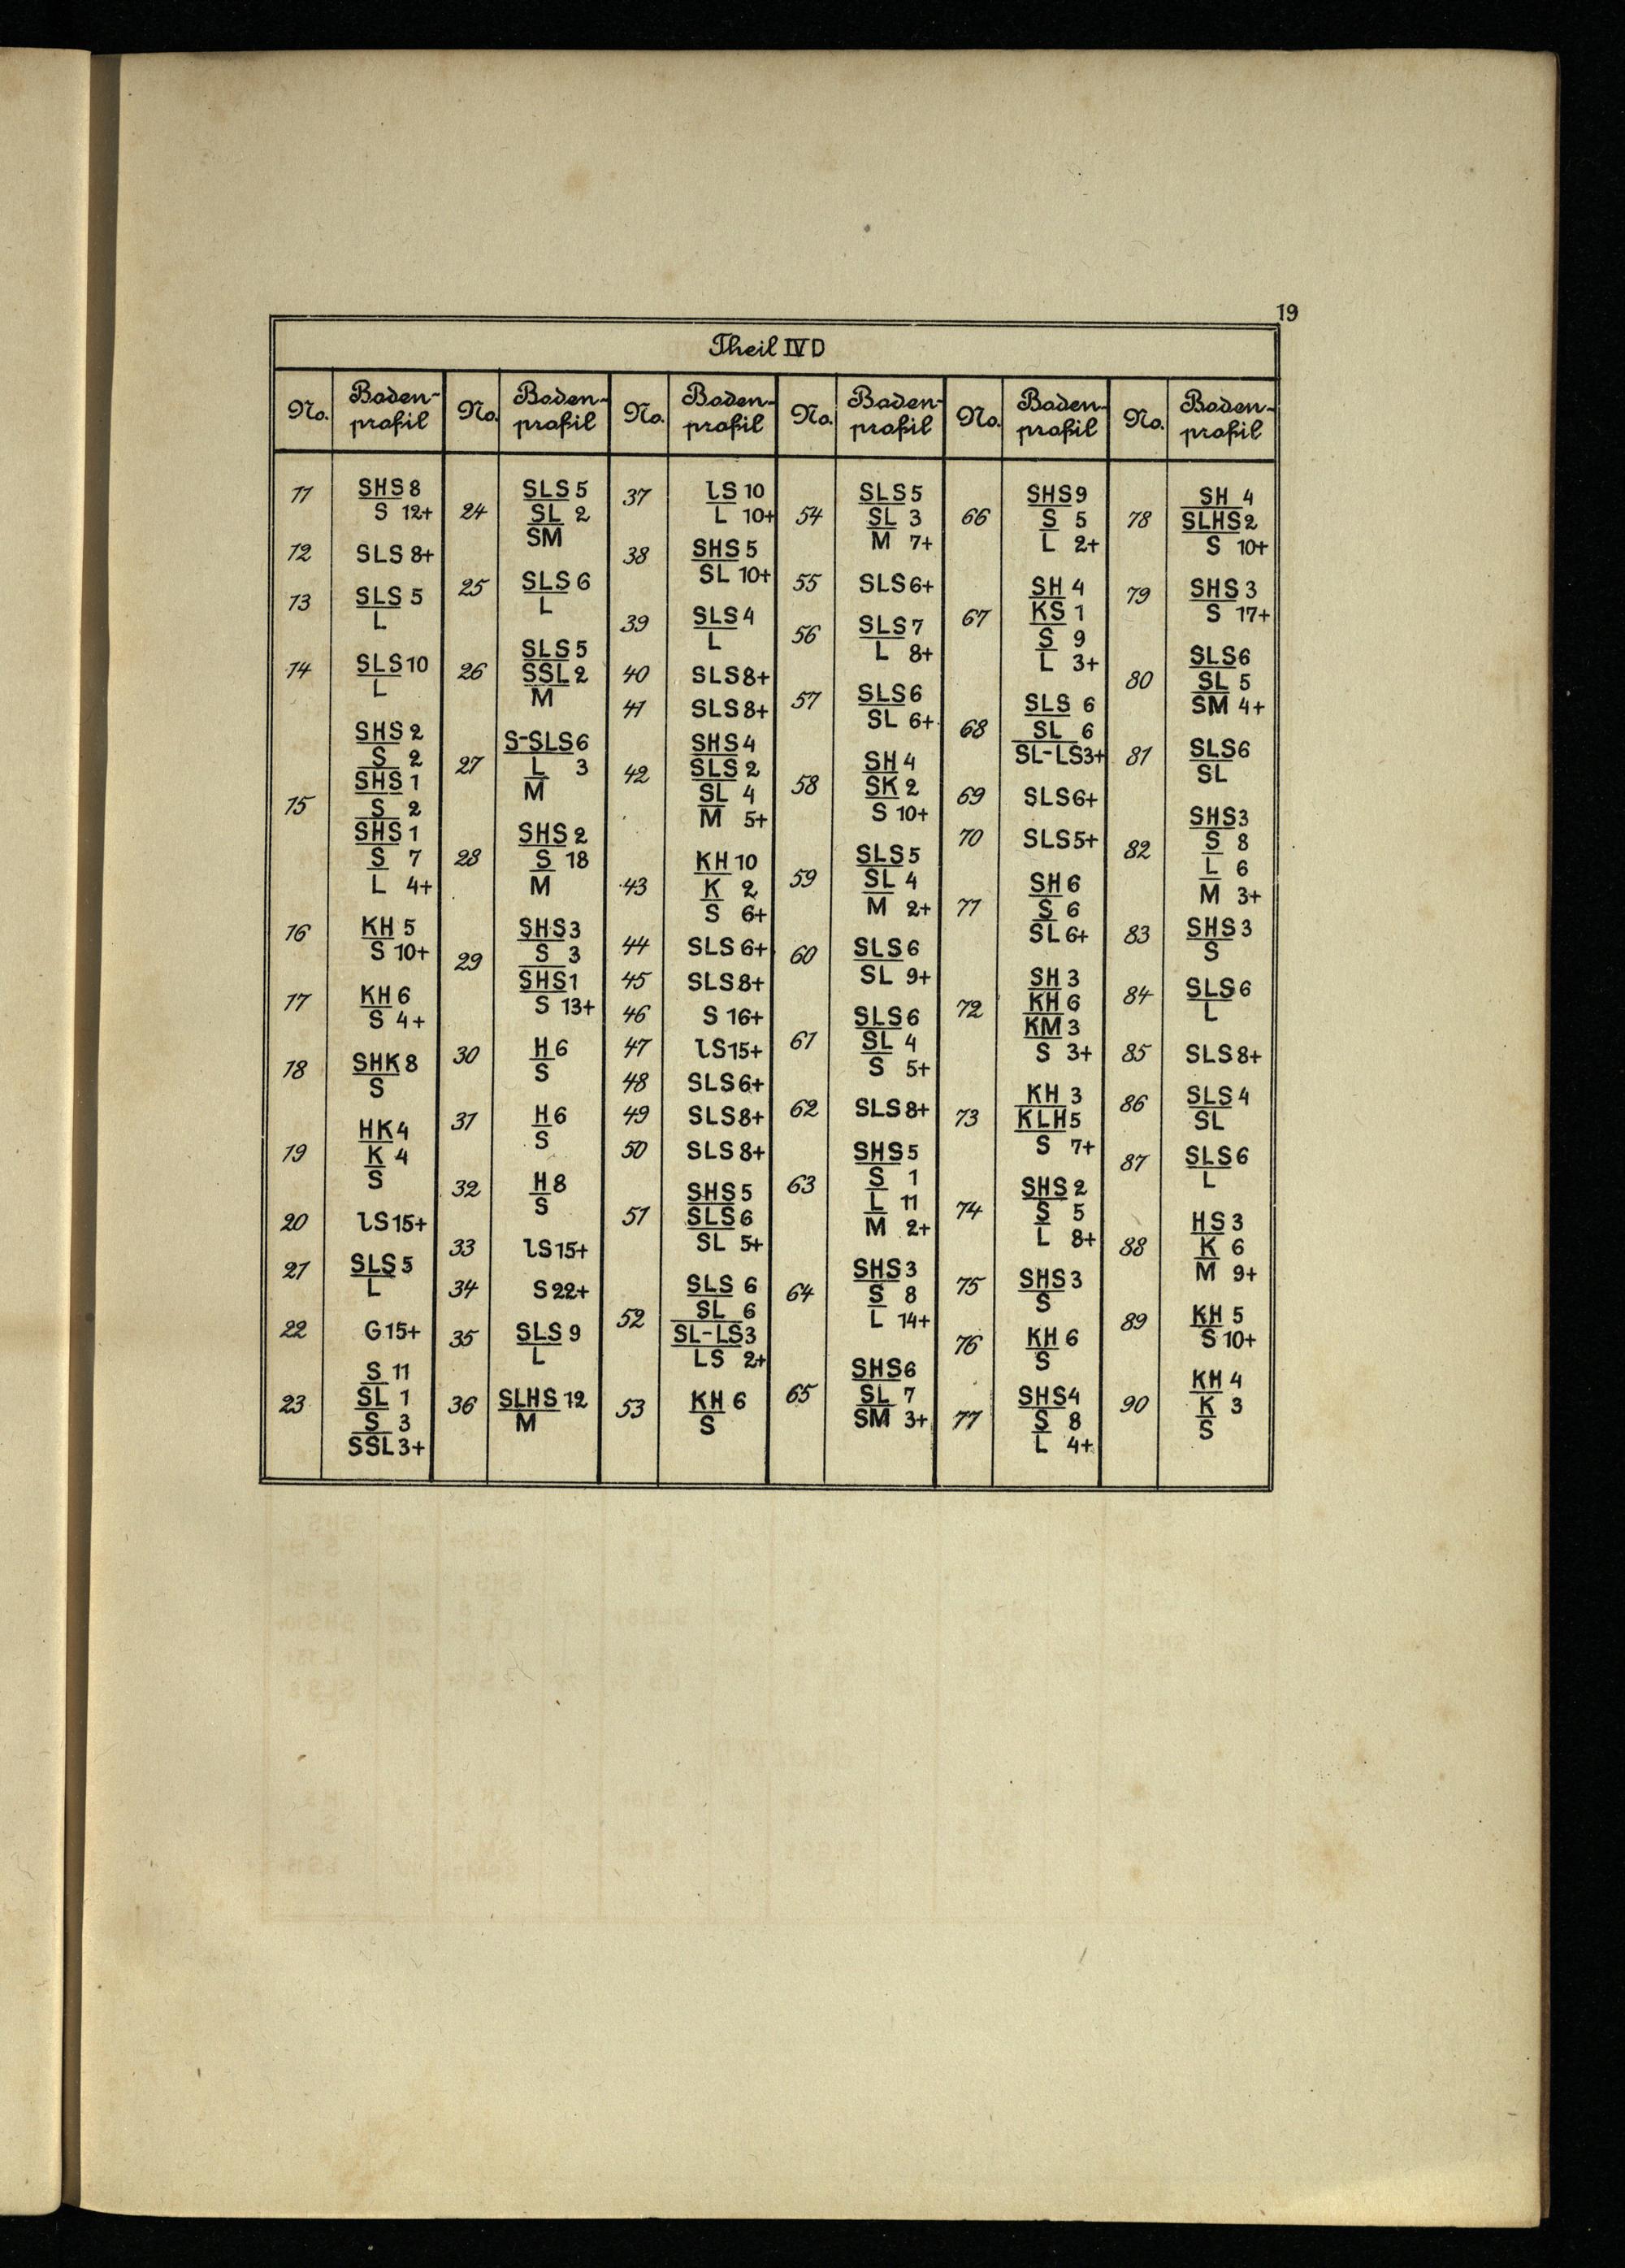 19
Theil IV D
No. Boden-profil No. Boden-profil No. Boden-profil No. Boden-profil No. Boden-profil No. Boden-profil
11 SHS 8
S 12+
12 SLS 8+
13 SLS 5
L
14 SLS 10
L
15 SHS 2
S 2
SHS 1
S 2
SHS 1
S 7
L 4+
16 KH 5
S 10+
17 KH 6
S 4+
18 SHK 8
S
19 HK 4
K 4
S
20 lS 15+
21 SLS 5
L
22 G 15+
23 S 11
SL 1
S 3
SSL 3+
24 SLS 5
SL 2
SM
25 SLS 6
L
26 SLS 5
SSL 2
M
27 S-SLS 6
L 3
M
28 SHS 2
S 18
M
29 SHS 3
S 3
SHS 1
S 13+
30 H 6
S
31 H 6
S
32 H 8
S
33 lS 15+
34 S 22+
35 SLS 9
L
36 SLHS 12
M
37 lS 10
L 10+
38 SHS 5
SL 10+
39 SLS 4
L
40 SLS 8+
41 SLS 8+
42 SHS 4
SLS 2
SL 4
M 5+
43 KH 10
K 2
S 6+
44 SLS 6+
45 SLS 8+
46 S 16+
47 lS 15+
48 SLS 6+
49 SLS 8+
50 SLS 8+
51 SHS 5
SLS 6
SL 5+
52 SLS 6
SL 6
SL-LS 3
LS 2+
53 KH 6
S
54 SLS 5
SL 3
M 7+
55 SLS 6+
56 SLS 7
L 8+
57 SLS 6
SL 6+
58 SH 4
SK 2
S 10+
59 SLS 5
SL 4
M 2+
60 SLS 6
SL 9+
61 SLS 6
SL 4
S 5+
62 SLS 8+
63 SHS 5
S 1
L 11
M 2+
64 SHS 3
S 8
L 14+
65 SHS 6
SL 7
SM 3+
66 SHS 9
S 5
L 2+
67 SH 4
KS 1
S 9
L 3+
68 SLS 6
SL 6
SL-LS 3+
69 SLS 6+
70 SLS 5+
71 SH 6
S 6
SL 6+
72 SH 3
KH 6
KM 3
S 3+
73 KH 3
KLH 5
S 7+
74 SHS 2
S 5
L 8+
75 SHS 3
S
76 KH 6
S
77 SHS 4
S 8
L 4+
78 SH 4
SLHS 2
S 10+
79 SHS 3
S 17+
80 SLS 6
SL 5
SM 4+
81 SLS 6
SL
82 SHS 3
S 8
L 6
M 3+
83 SHS 3
S
84 SLS 6
L
85 SLS 8+
86 SLS 4
SL
87 SLS 6
L
88 HS 3
K 6
M 9+
89 KH 5
S 10+
90 KH 4
K 3
S